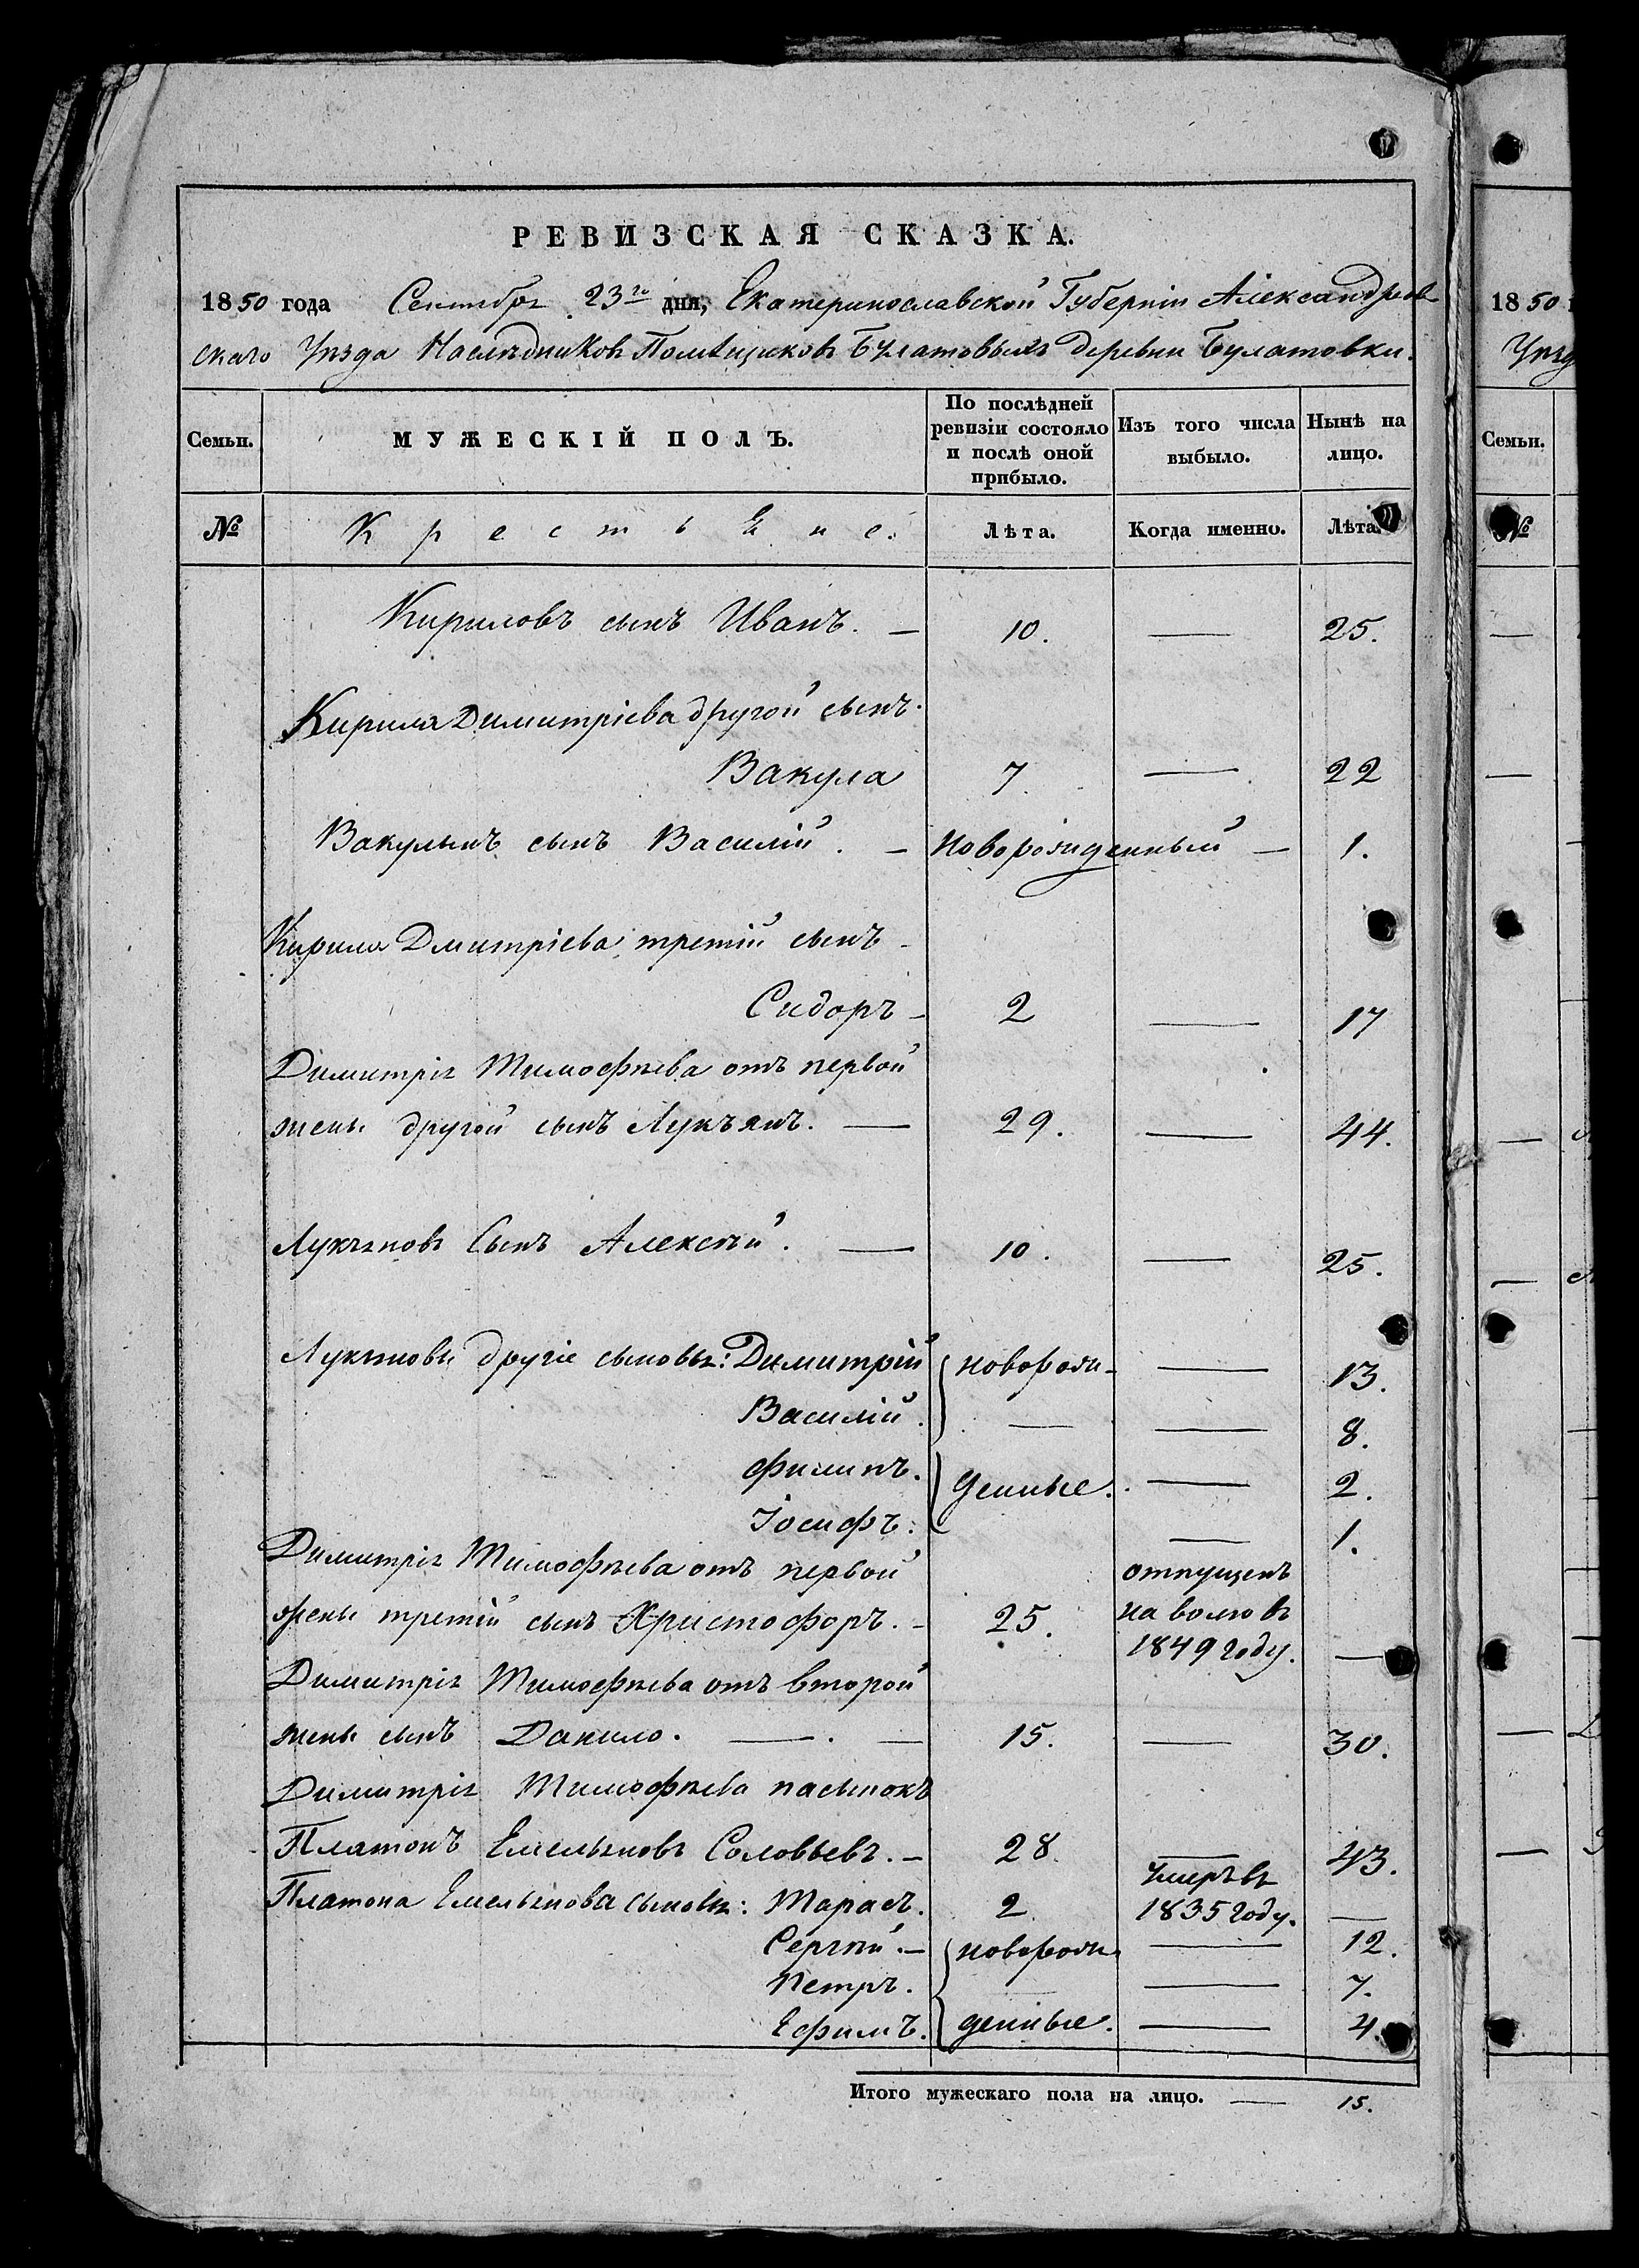 РЕВИЗСКАЯ СКАЗКА.
1850 года Сентября 23го дня, Екатеринославской Губерніи Александров
скаго Уѣзда Наслѣдниковъ Помѣщиковъ Булатовыхъ деревни Булатовки.
Семьи. МУЖЕСКІЙ ПОЛЪ. По послѣдней ревизіи состояло и послѣ оной прибыло. Изъ того числа выбыло. Нынѣ на лицо.
№ Крестьяне. Лѣта. Когда именно. Лѣта.
Кириловъ сынъ Иванъ. — 10. — 25.
Кирила Димитріева другой сынъ
Вакула 7. — 22
Вакулынъ сынъ Василій. — новорожденный — 1.
Кирила Дмитріева третій сынъ
Сидоръ — 2 — 17
Димитрія Тимофѣева отъ первой
жены другой сынъ Лукъянъ. — 29. — 44.
Лукъяновъ Сынъ Алексѣй. — 10. — 25.
Лукъяновы другіе сыновья: Димитрій новорож- — 13.
Василій. — — 8.
Филипъ. денные. — 2.
Іосифъ. — 1.
Димитрія Тимофѣева отъ первой отпущенъ
жены третій сынъ Христофоръ. — 25. на волю въ
1849 году. —
Димитрія Тимофѣева отъ второй
жены сынъ Данило. — . — 15. — 30.
Димитрія Тимофѣева пасынокъ
Платонъ Емельяновъ Соловьевъ. — 28. — 43.
Платона Емельянова сыновья: Тарасъ. 2 Умеръ въ 1835 году. —
Сергѣй. — новорож — 12.
Петръ. — 7.
Ефимъ. денные. — 4.
Итого мужескаго пола на лицо. — 15.
1850
Уѣзд
Семьи.
№